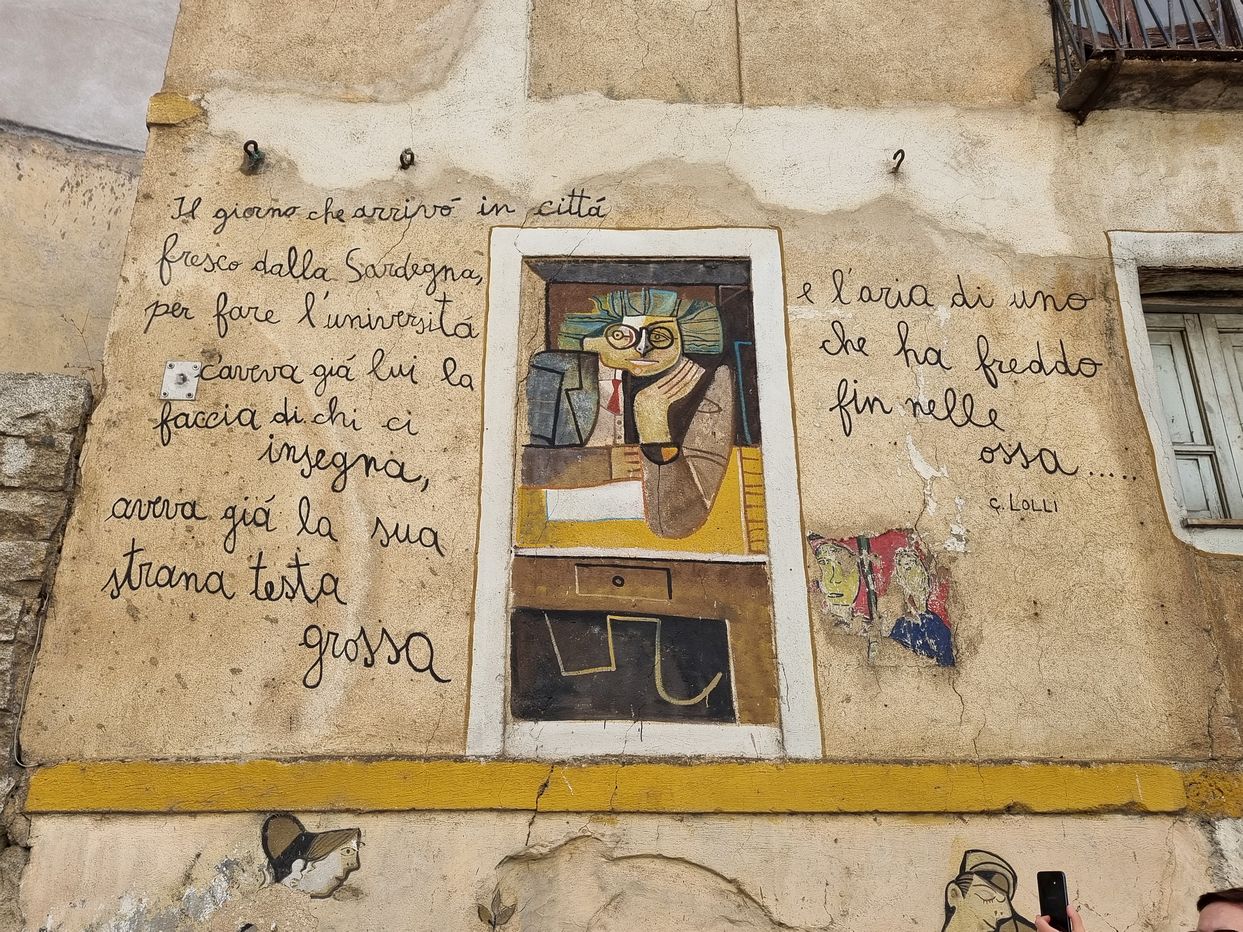 Il giorno che arrivó in cittá
fresco dalla Sardegna,
per fare l'universitá
aveva giá lui la
faccia di chi ci
insegna,
aveva giá la sua
strana testa
grossa
e l'aria di uno
che ha freddo
fin nelle
ossa....
C. LOLLI